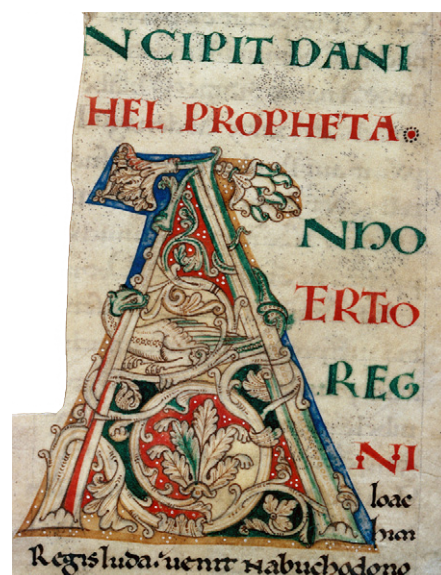 NCIPIT DANI
HEL PROPHETA
A NNO
ERTIO
REG
NI
Ioac
him
Regis Iuda. uenit Nabuchodono